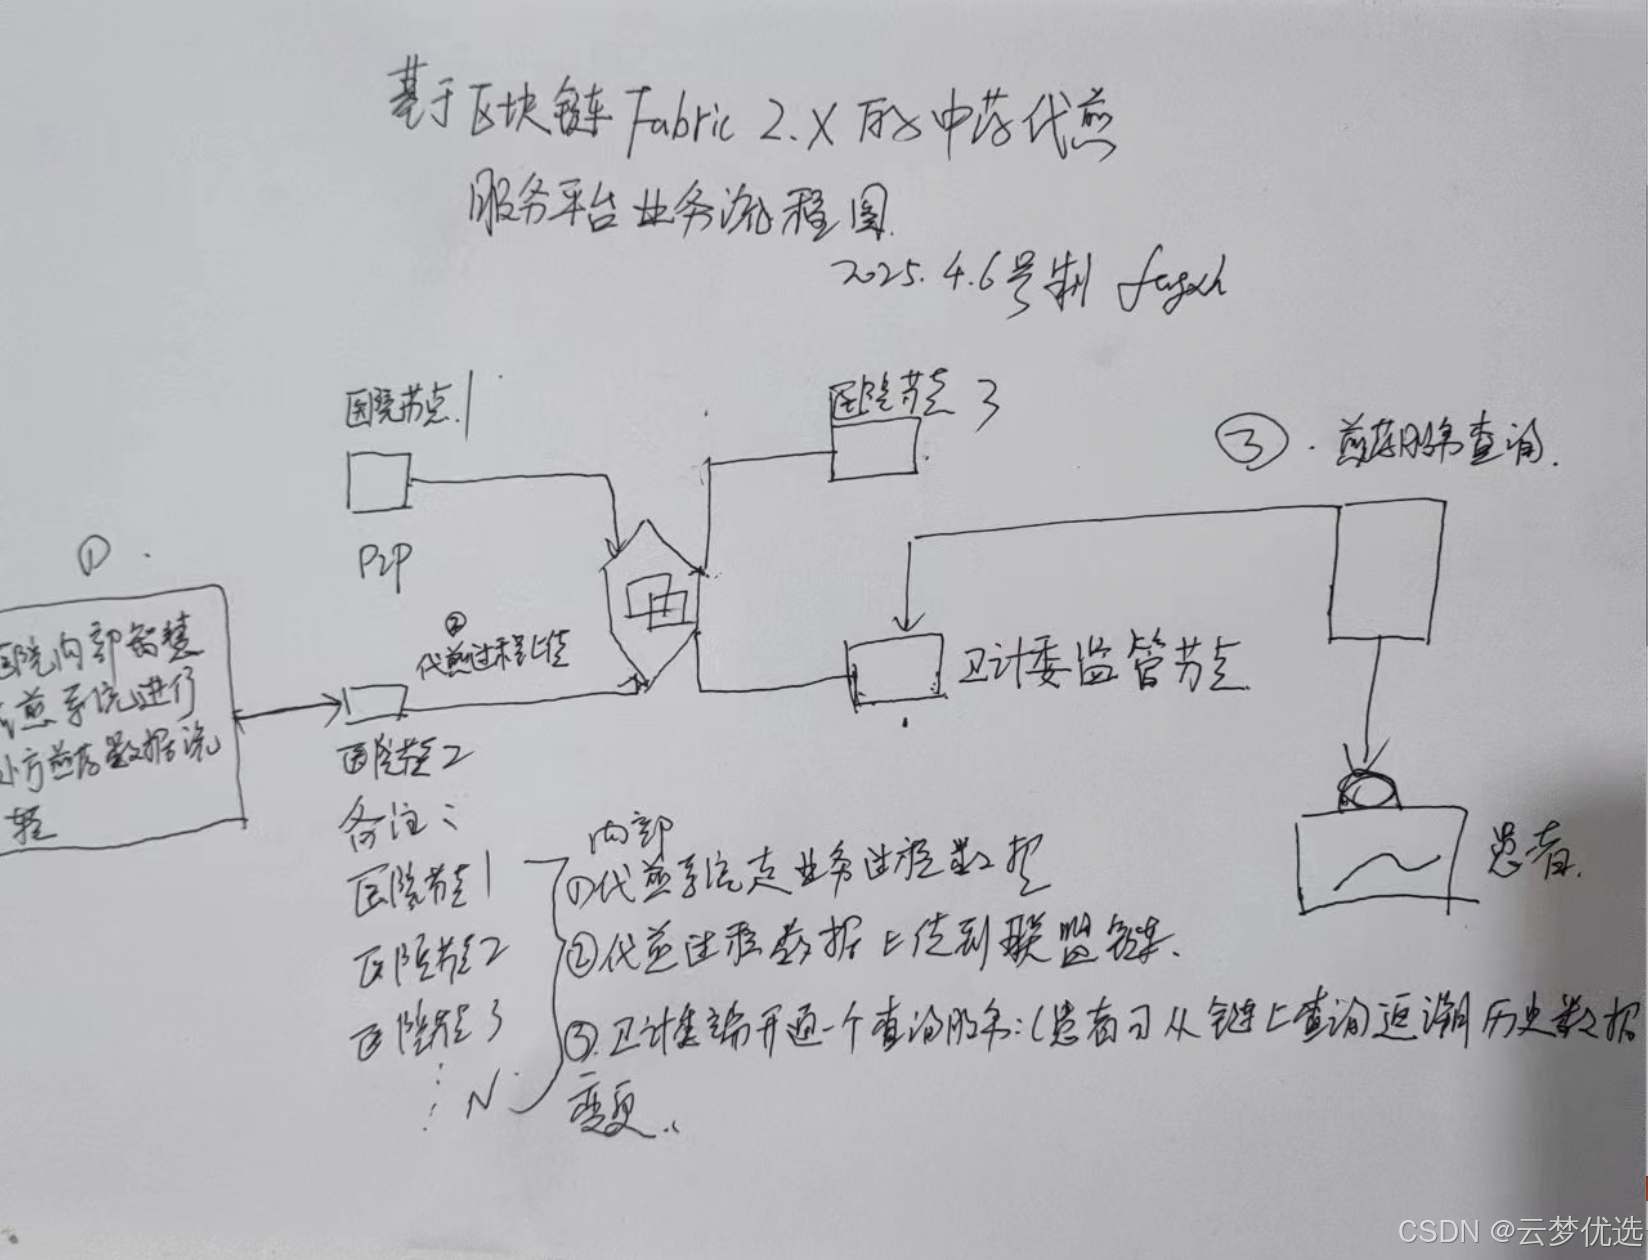 基于区块链 Fabric 2.X 的中药代煎
服务平台业务流程图
2025.4.6号制 fengxh
医院节点1
医院节点3
③.煎药服务查询.
P2P
①
医院内部智慧
代煎系统进行
处方煎药数据流
转
②
代煎过程上传
卫计委监管节点
医院节点2
患者.
备注:
医院节点1
医院节点2
医院节点3
N
内部
①代煎系统走业务过程数据
②代煎过程数据上传到联盟链.
③.卫计委端开通一个查询服务:(患者可从链上查询追溯历史数据
变更..
CSDN @云梦优选